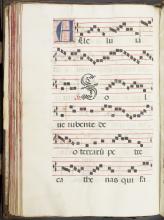 Alle lu ia
So
ue iubente de
o terrarū pe tre
ca the nas qui fa